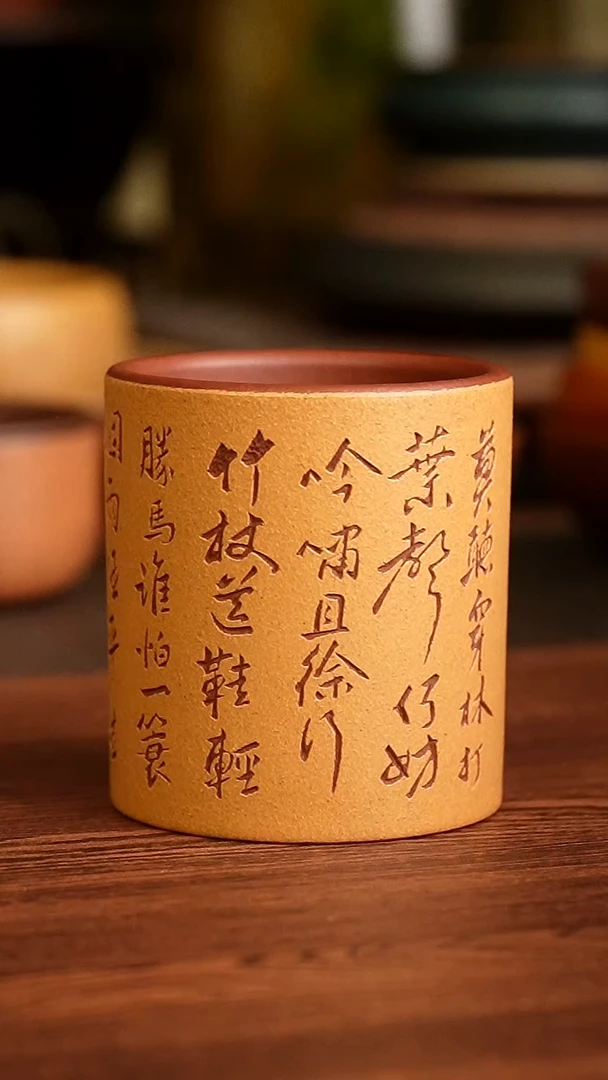 莫聽穿林打
葉聲何妨
吟嘯且徐行
竹杖芒鞋輕
勝馬誰怕一簑
烟雨任平生